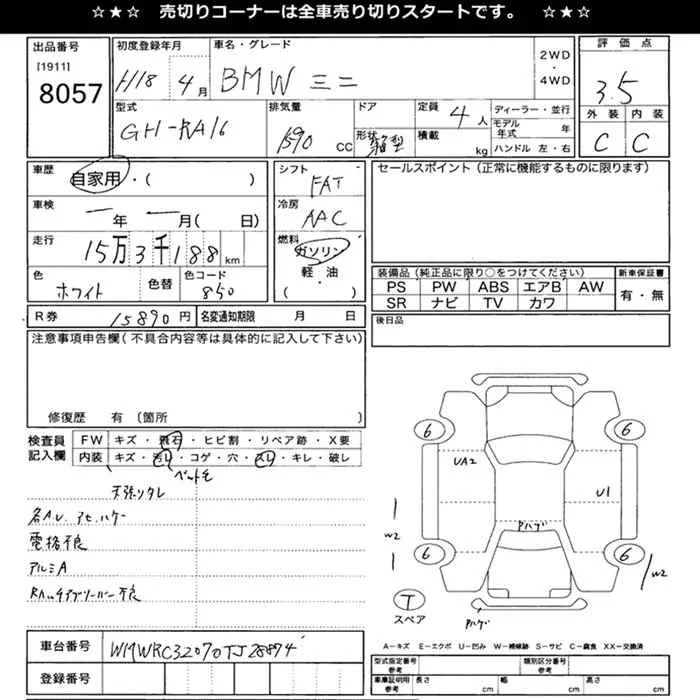 ☆★☆ 売切りコーナーは全車売り切りスタートです。 ☆★☆
出品番号
[1911]
8057
初度登録年月
H18 4月
車名・グレード
BMW ミニ
2WD
・
4WD
評価点
3.5
外装 内装
C C
型式
GH-RA16
排気量
1590 CC
ドア
形状 箱型
定員 4人
積載 kg
ディーラー・並行
モデル年式 年
ハンドル 左・右
車歴
自家用・( )
車検
一年 一月( 日)
走行
15万3千188km
色
ホワイト
色替
色コード
850
シフト
FAT
冷房
AAC
燃料
ガソリン
軽・油
( )
セールスポイント(正常に機能するものに限ります)
装備品(純正品に限り○をつけてください)
PS PW ABS エアB AW
SR ナビ TV カワ
新車保証書
有・無
R券 15890円
名変通知期限 月 日
後日品
注意事項申告欄(不具合内容等は具体的に記入して下さい)
修復歴 有 (箇所 )
検査員記入欄
FW キズ・飛石・ヒビ割・リペア跡・X要
内装 キズ・汚レ・コゲ・穴・スレ・キレ・破レ
天張リタレ
電格不良
アルミA
6 6
UA2
U1
Pハゲ
W2
6 6
W2
T
スペア
Pハゲ
A−キズ E−エクボ U−凹み W−補修跡 S−サビ C−腐食 XX−交換済
車台番号 WMWRC32070TJ28874
登録番号
型式指定番号
参考
類別区分番号
参考
車庫証明用
参考
長さ cm
幅 cm
高さ cm